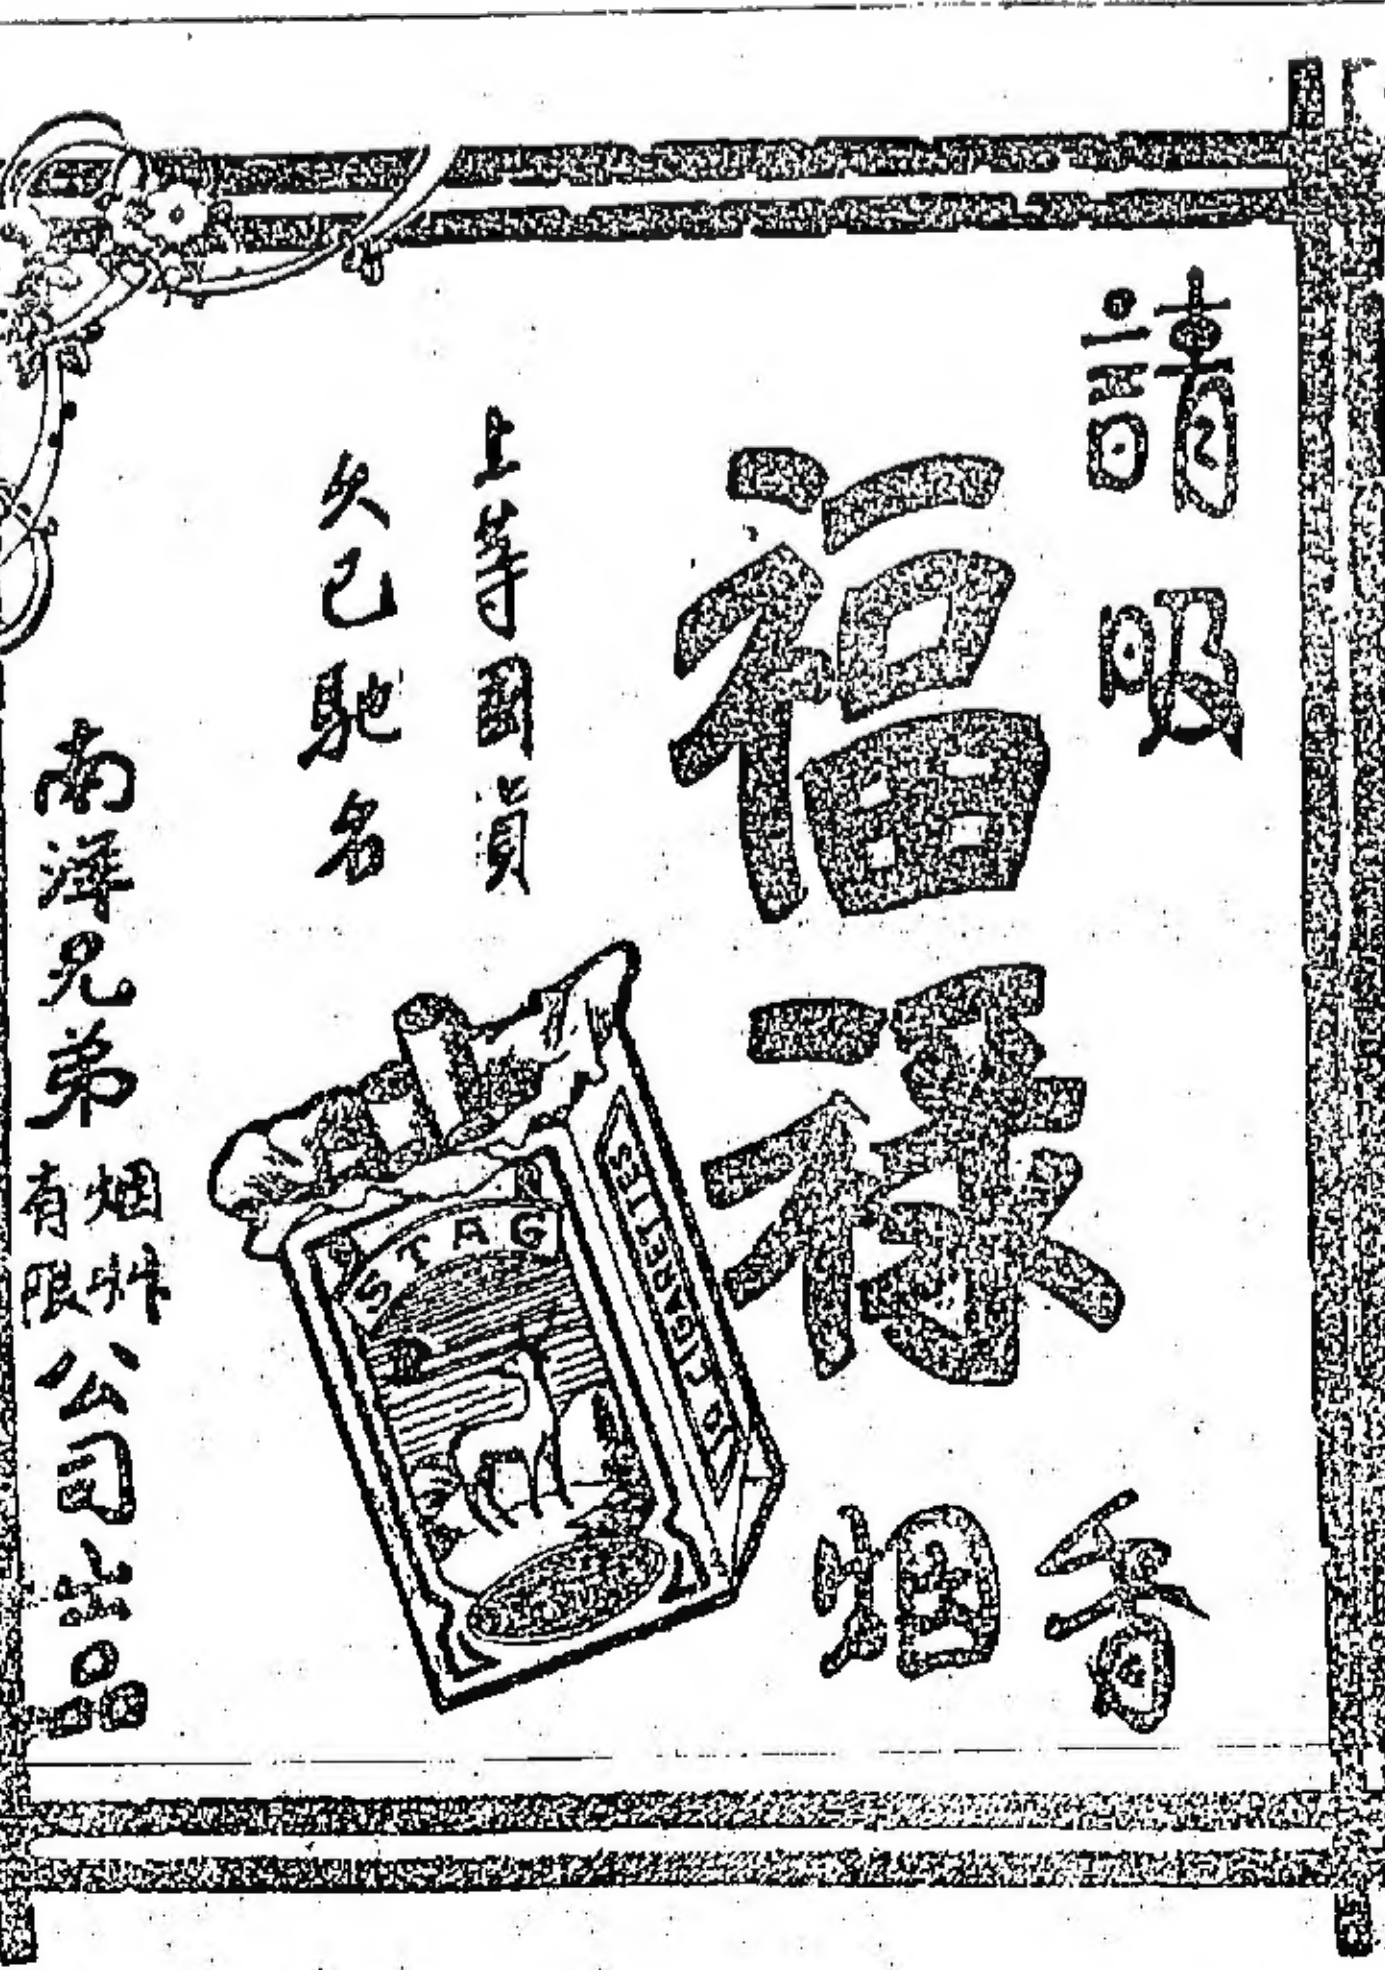 請吸
福祿
香烟
上等國貨
久已馳名
STAG
10 CIGARETTES
南洋兄弟烟艸有限公司出品